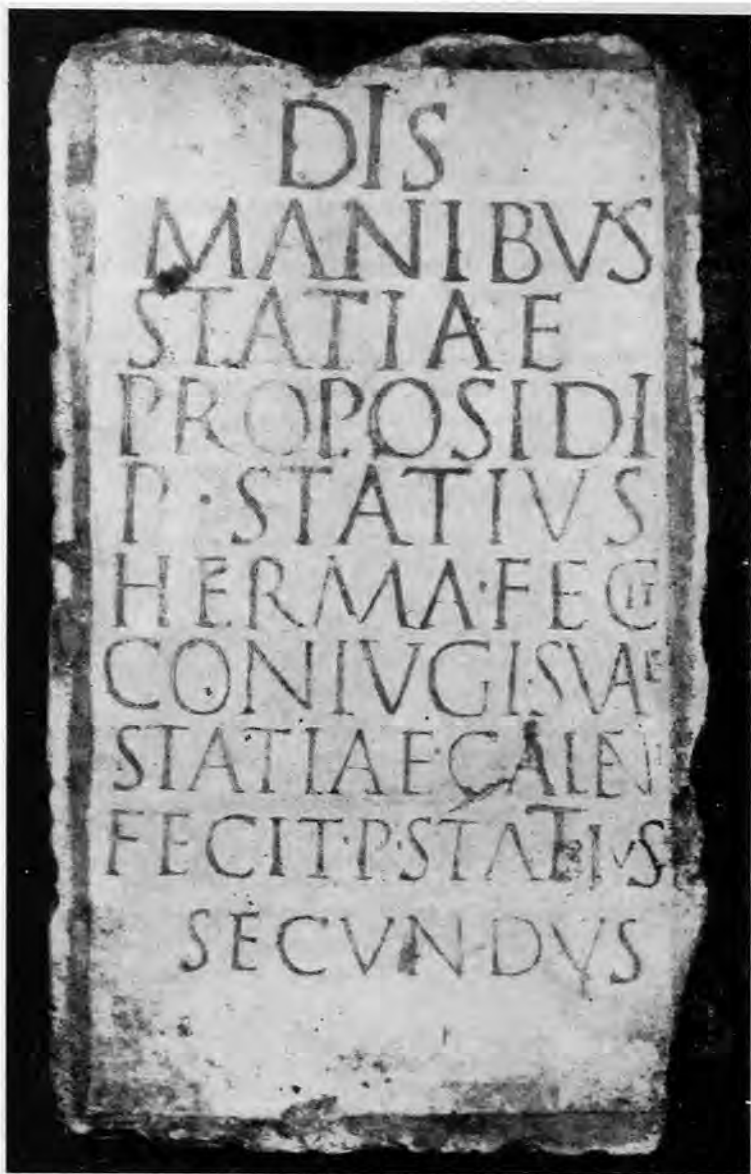 DIS
MANIBVS
STATIAE
PROPOSIDI
P · STATIVS
HERMA · FECIT
CONIVGI · SVAE
STATIAE · CALENI
FECIT · P · STATIVS
SECVNDVS